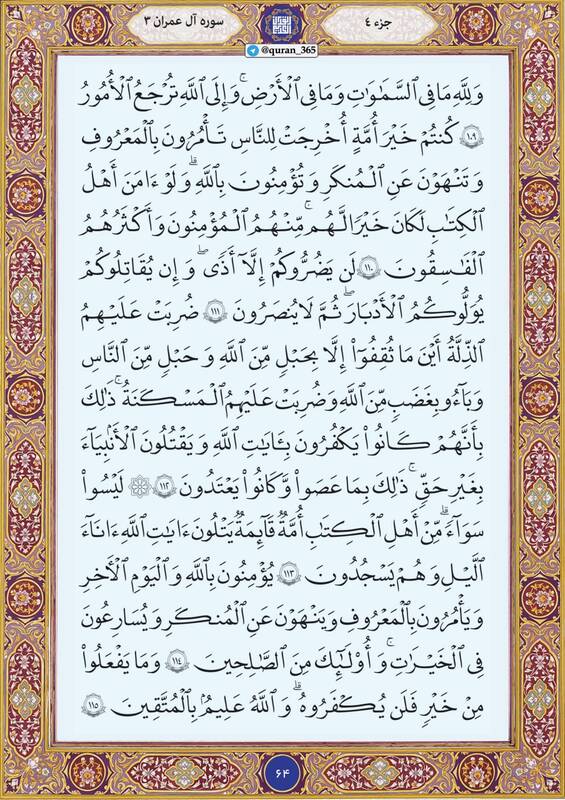 جزء ٤
سوره آل عمران ٣
@quran_365
وَلِلَّهِ مَا فِي ٱلسَّمَٰوَٰتِ وَمَا فِي ٱلْأَرْضِ ۚ وَإِلَى ٱللَّهِ تُرْجَعُ ٱلْأُمُورُ
١٠٩ كُنتُمْ خَيْرَ أُمَّةٍ أُخْرِجَتْ لِلنَّاسِ تَأْمُرُونَ بِٱلْمَعْرُوفِ
وَتَنْهَوْنَ عَنِ ٱلْمُنكَرِ وَتُؤْمِنُونَ بِٱللَّهِ ۗ وَلَوْ ءَامَنَ أَهْلُ
ٱلْكِتَٰبِ لَكَانَ خَيْرًا لَّهُم ۚ مِّنْهُمُ ٱلْمُؤْمِنُونَ وَأَكْثَرُهُمُ
ٱلْفَٰسِقُونَ ١١٠ لَن يَضُرُّوكُمْ إِلَّآ أَذًى ۖ وَإِن يُقَٰتِلُوكُمْ
يُوَلُّوكُمُ ٱلْأَدْبَارَ ۖ ثُمَّ لَا يُنصَرُونَ ١١١ ضُرِبَتْ عَلَيْهِمُ
ٱلذِّلَّةُ أَيْنَ مَا ثُقِفُوٓا۟ إِلَّا بِحَبْلٍ مِّنَ ٱللَّهِ وَحَبْلٍ مِّنَ ٱلنَّاسِ
وَبَآءُو بِغَضَبٍ مِّنَ ٱللَّهِ وَضُرِبَتْ عَلَيْهِمُ ٱلْمَسْكَنَةُ ۚ ذَٰلِكَ
بِأَنَّهُمْ كَانُوا۟ يَكْفُرُونَ بِـَٔايَٰتِ ٱللَّهِ وَيَقْتُلُونَ ٱلْأَنۢبِيَآءَ
بِغَيْرِ حَقٍّ ۚ ذَٰلِكَ بِمَا عَصَوا۟ وَّكَانُوا۟ يَعْتَدُونَ ١١٢ ۞ لَيْسُوا۟
سَوَآءً ۗ مِّنْ أَهْلِ ٱلْكِتَٰبِ أُمَّةٌ قَآئِمَةٌ يَتْلُونَ ءَايَٰتِ ٱللَّهِ ءَانَآءَ
ٱلَّيْلِ وَهُمْ يَسْجُدُونَ ١١٣ يُؤْمِنُونَ بِٱللَّهِ وَٱلْيَوْمِ ٱلْأٓخِرِ
وَيَأْمُرُونَ بِٱلْمَعْرُوفِ وَيَنْهَوْنَ عَنِ ٱلْمُنكَرِ وَيُسَٰرِعُونَ
فِي ٱلْخَيْرَٰتِ ۚ وَأُو۟لَٰٓئِكَ مِنَ ٱلصَّٰلِحِينَ ١١٤ وَمَا يَفْعَلُوا۟
مِنْ خَيْرٍ فَلَن يُكْفَرُوهُ ۗ وَٱللَّهُ عَلِيمٌۢ بِٱلْمُتَّقِينَ ١١٥
۶۴